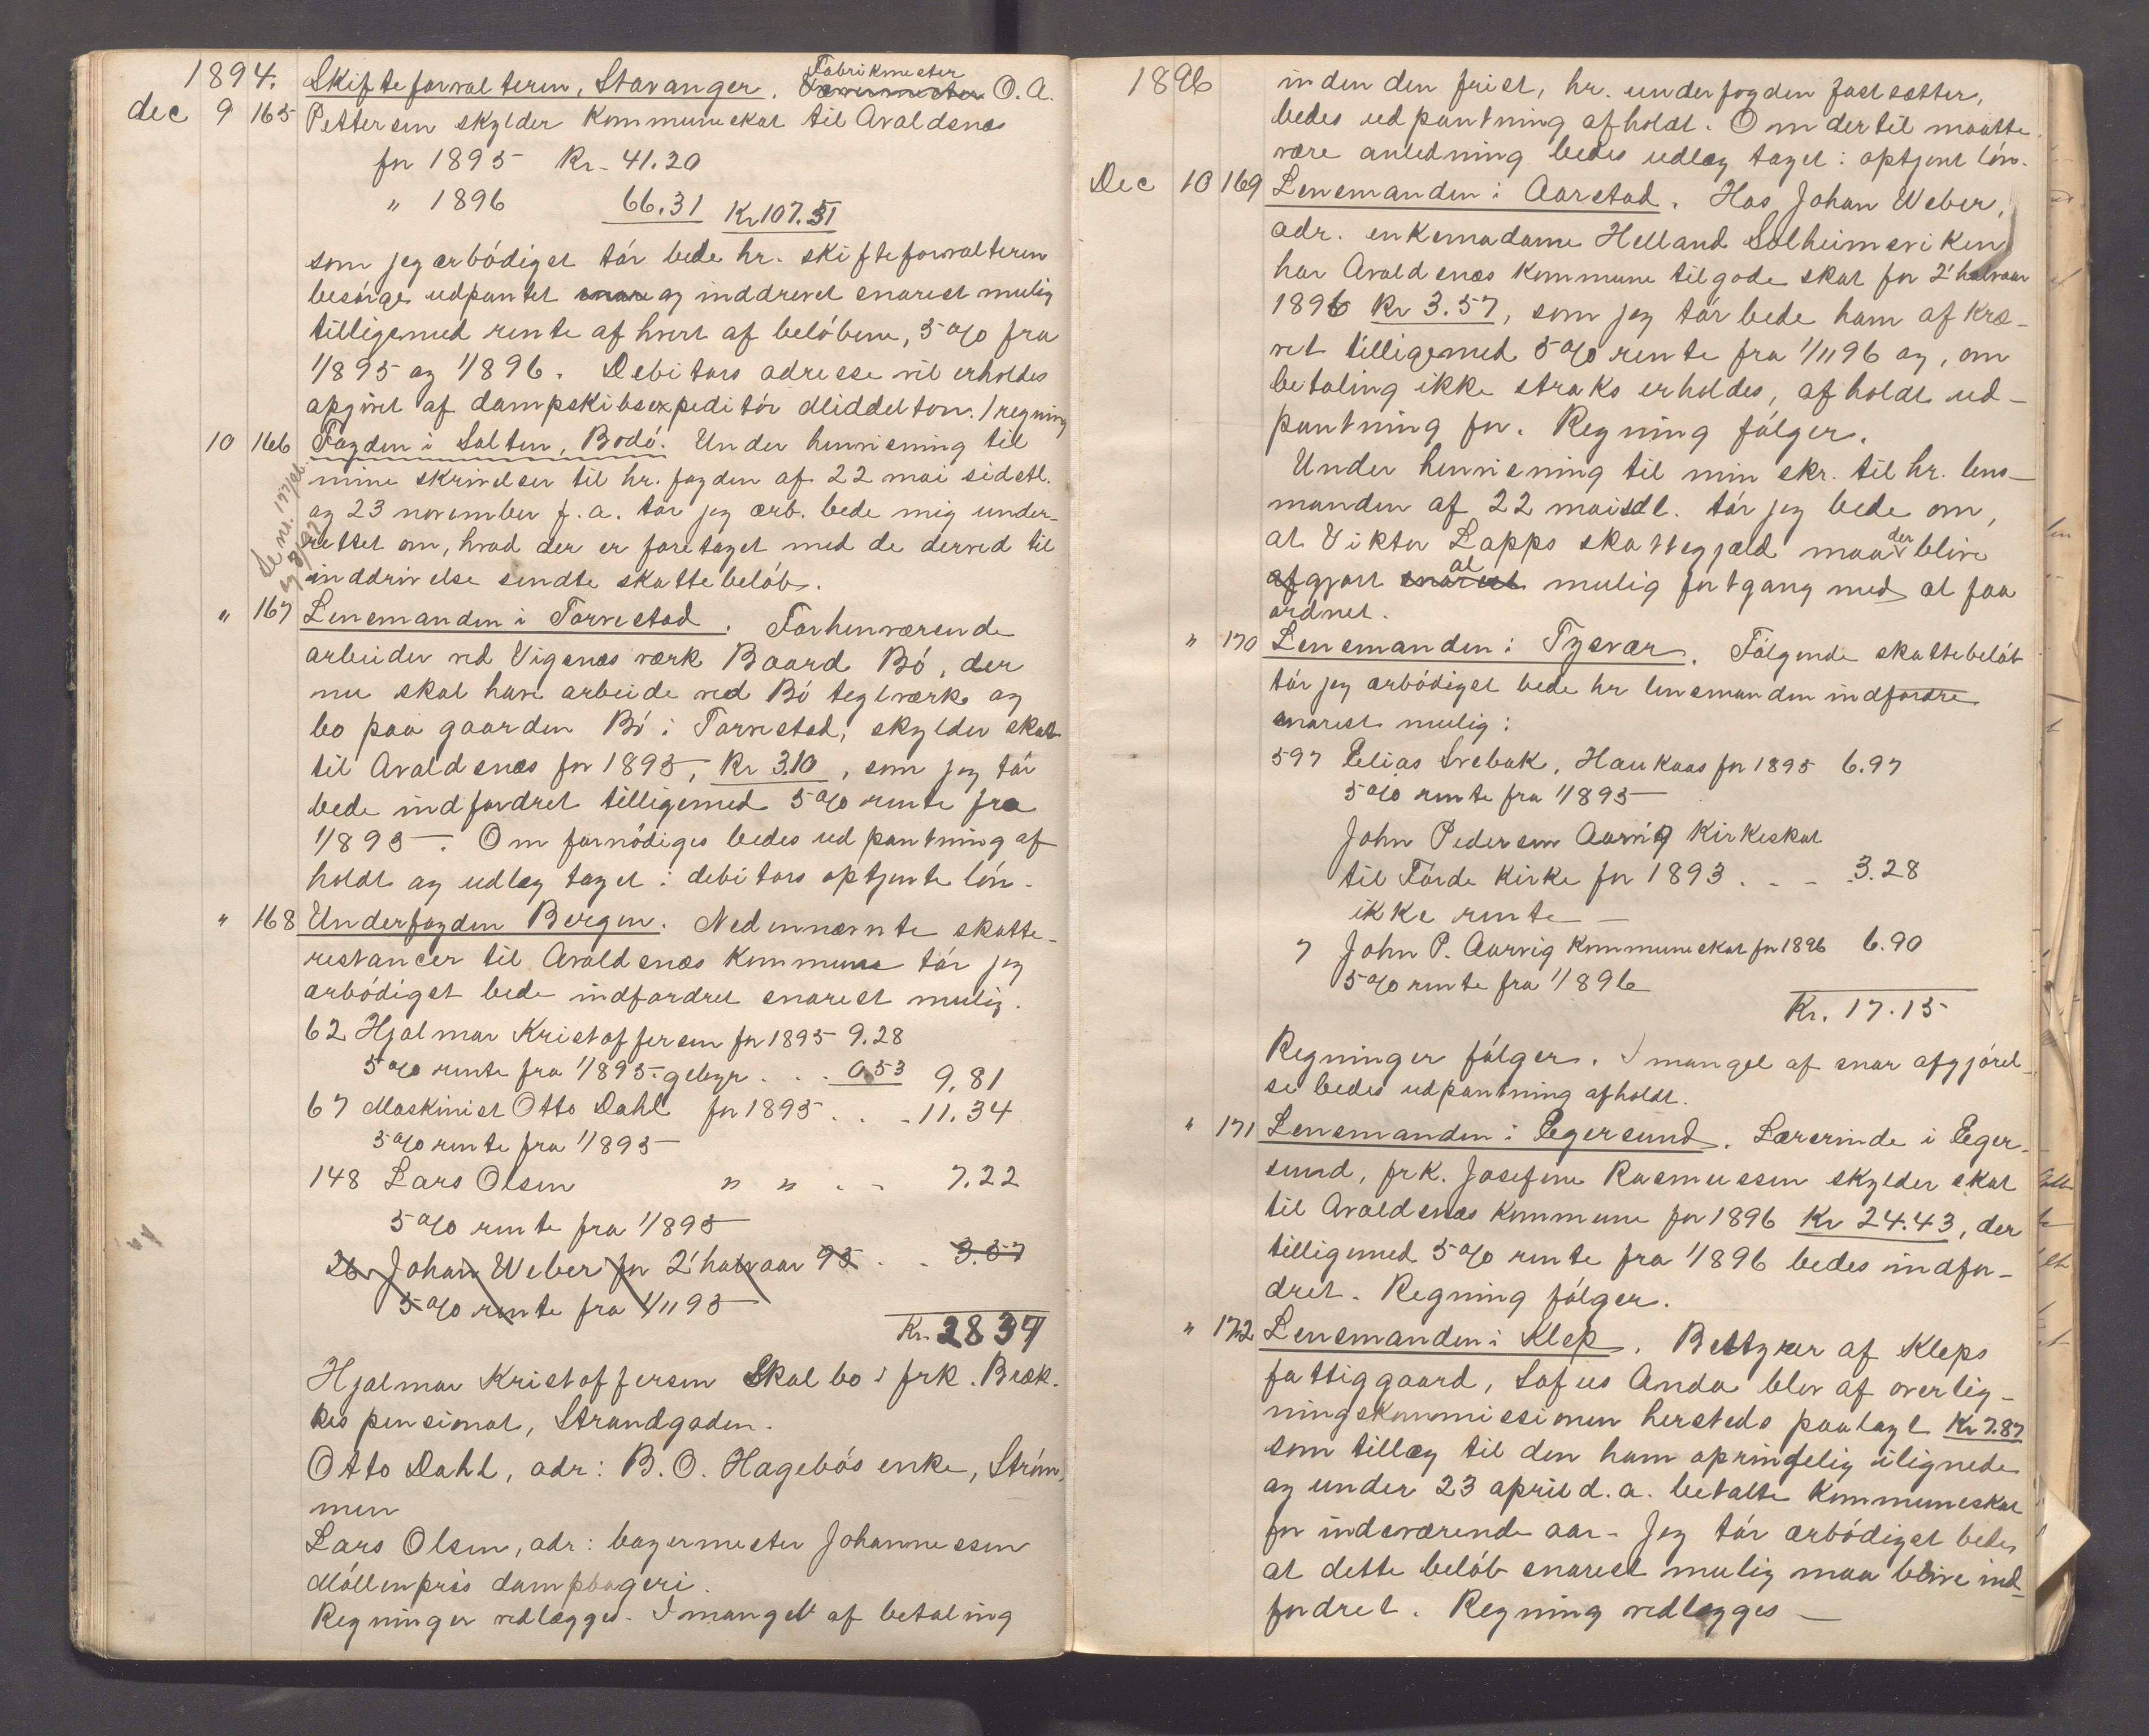 1894. Skifteforvalteren, Stavanger. Fabrikmester O. A.
dec 9 165 Pettersen skylder Kommuneskat til Avaldsnæs
for 1895 Kr. 41.20
" 1896 66.31 Kr 107.51
som jeg ærbödigst tör bede hr. skifteforvalteren
besörge udpantet og inddrevet snarest mulig
tilligemed rente af hvert af belöbene, 5 % fra
1/8 95 og 1/8 96. Debitors adresse vil erholdes
opgivet af dampskibsexpeditör Middelton. 1 regning
10 166 Fogden i Salten, Bodö. Under henvisning til
mine skrivelser til hr. fogden af 22 mai sidstl.
og 23 november f. a. tör jeg ærb. bede mig under-
rettet om, hvad der er foretaget med de derved til
inddrivelse sendte skattebelöb.
" 167 Lensmanden i Torvestad. Forhenværende
arbeider ved Vigsnæs værk Baard Bö, der
nu skal have arbeide ved Bö teglværk og
bo paa gaarden Bö i Torvestad, skylder skat
til Avaldsnæs for 1895, Kr 3.10, som jeg tör
bede indfordret tilligemed 5 % rente fra
1/8 95. Om fornödiges bedes udpantning af-
holdt og udlæg taget i debitors optjente lön.
" 168 Underfogden Bergen. Nedennævnte skatte-
restancer til Avaldsnæs Kommune tör jeg
ærbödigst bede indfordret snarest mulig.
62 Hjalmar Kristoffersen for 1895 9.28
5 % rente fra 1/8 95. gebyr . . . 0.53 9,81
67 Maskinist Otto Dahl for 1895 . . . 11.34
5 % rente fra 1/8 95
148 Lars Olsen " " . . 7.22
5 % rente fra 1/8 95
26 Johan Weber for 2' halvaar 95 . . 3.57
5 % rente fra 1/11 95
Kr. 28 37
Hjalmar Kristoffersen Skal bo i frk. Bræk-
kes pensionat, Strandgaden.
Otto Dahl, adr: B. O. Hagebös enke, Ström-
men
Lars Olsen, adr: bagermester Johannessen
Möllenpris dampbageri.
Regninger vedlægges. I mangel af betaling
1896 inden den frist, hr. underfogden fastsætter,
bedes udpantning afholdt. Om dertil maatte
være anledning bedes udlæg taget i optjent lön.
Dec 10 169 Lensmanden i Aarstad. Hos Johan Weber,
adr. enkemadame Helland Solheimsviken
har Avaldsnæs Kommune tilgode skat for 2' halvaar
1896 Kr 3.57, som jeg tör bede ham afkræ-
vet tilligemed 5 % rente fra 1/11 96 og, om
betaling ikke straks erholdes, afholdt ud-
pantning for. Regning fölger.
Under henvisning til min skr. til hr. lens-
manden af 22 mai sdl. tör jeg bede om,
at Viktor Lapps skattegjæld maa der blive
gjort al mulig fortgang med at faa
ordnet.
" 170 Lensmanden i Tysvær. Fölgende skattebelöb
tör jeg ærbödigst bede hr lensmanden indfordre
snarest mulig:
597 Elias Svebak, Haukaas for 1895 6.97
5 % rente fra 1/8 95
John Pedersen Aarvig Kirkeskat
til Förde Kirke for 1893 . . . 3.28
ikke rente
7 John P. Aarvig Kommuneskat for 1896 6.90
5 % rente fra 1/8 96
Kr. 17.15
Regninger fölger. I mangel af snar afgjörel-
se bedes udpantning afholdt.
" 171 Lensmanden i Egersund. Lærerinde i Eger-
sund, frk. Josefine Rasmussen skylder skat
til Avaldsnæs Kommune for 1896 Kr 24.43, der
tilligemed 5 % rente fra 1/8 96 bedes indfor-
dret. Regning fölger.
" 172 Lensmanden i Klep. Bestyrer af Kleps
fattiggaard, Sofus Anda blev af overlig-
ningskommissionen hersteds paalagt Kr 7.87
som tillæg til den ham oprindelig ilignede
og under 23 april d. a. betalte Kommuneskat
for indeværende aar. Jeg tör ærbödigst bede,
at dette belöb snarest mulig maa blive ind-
fordret. Regning vedlægges